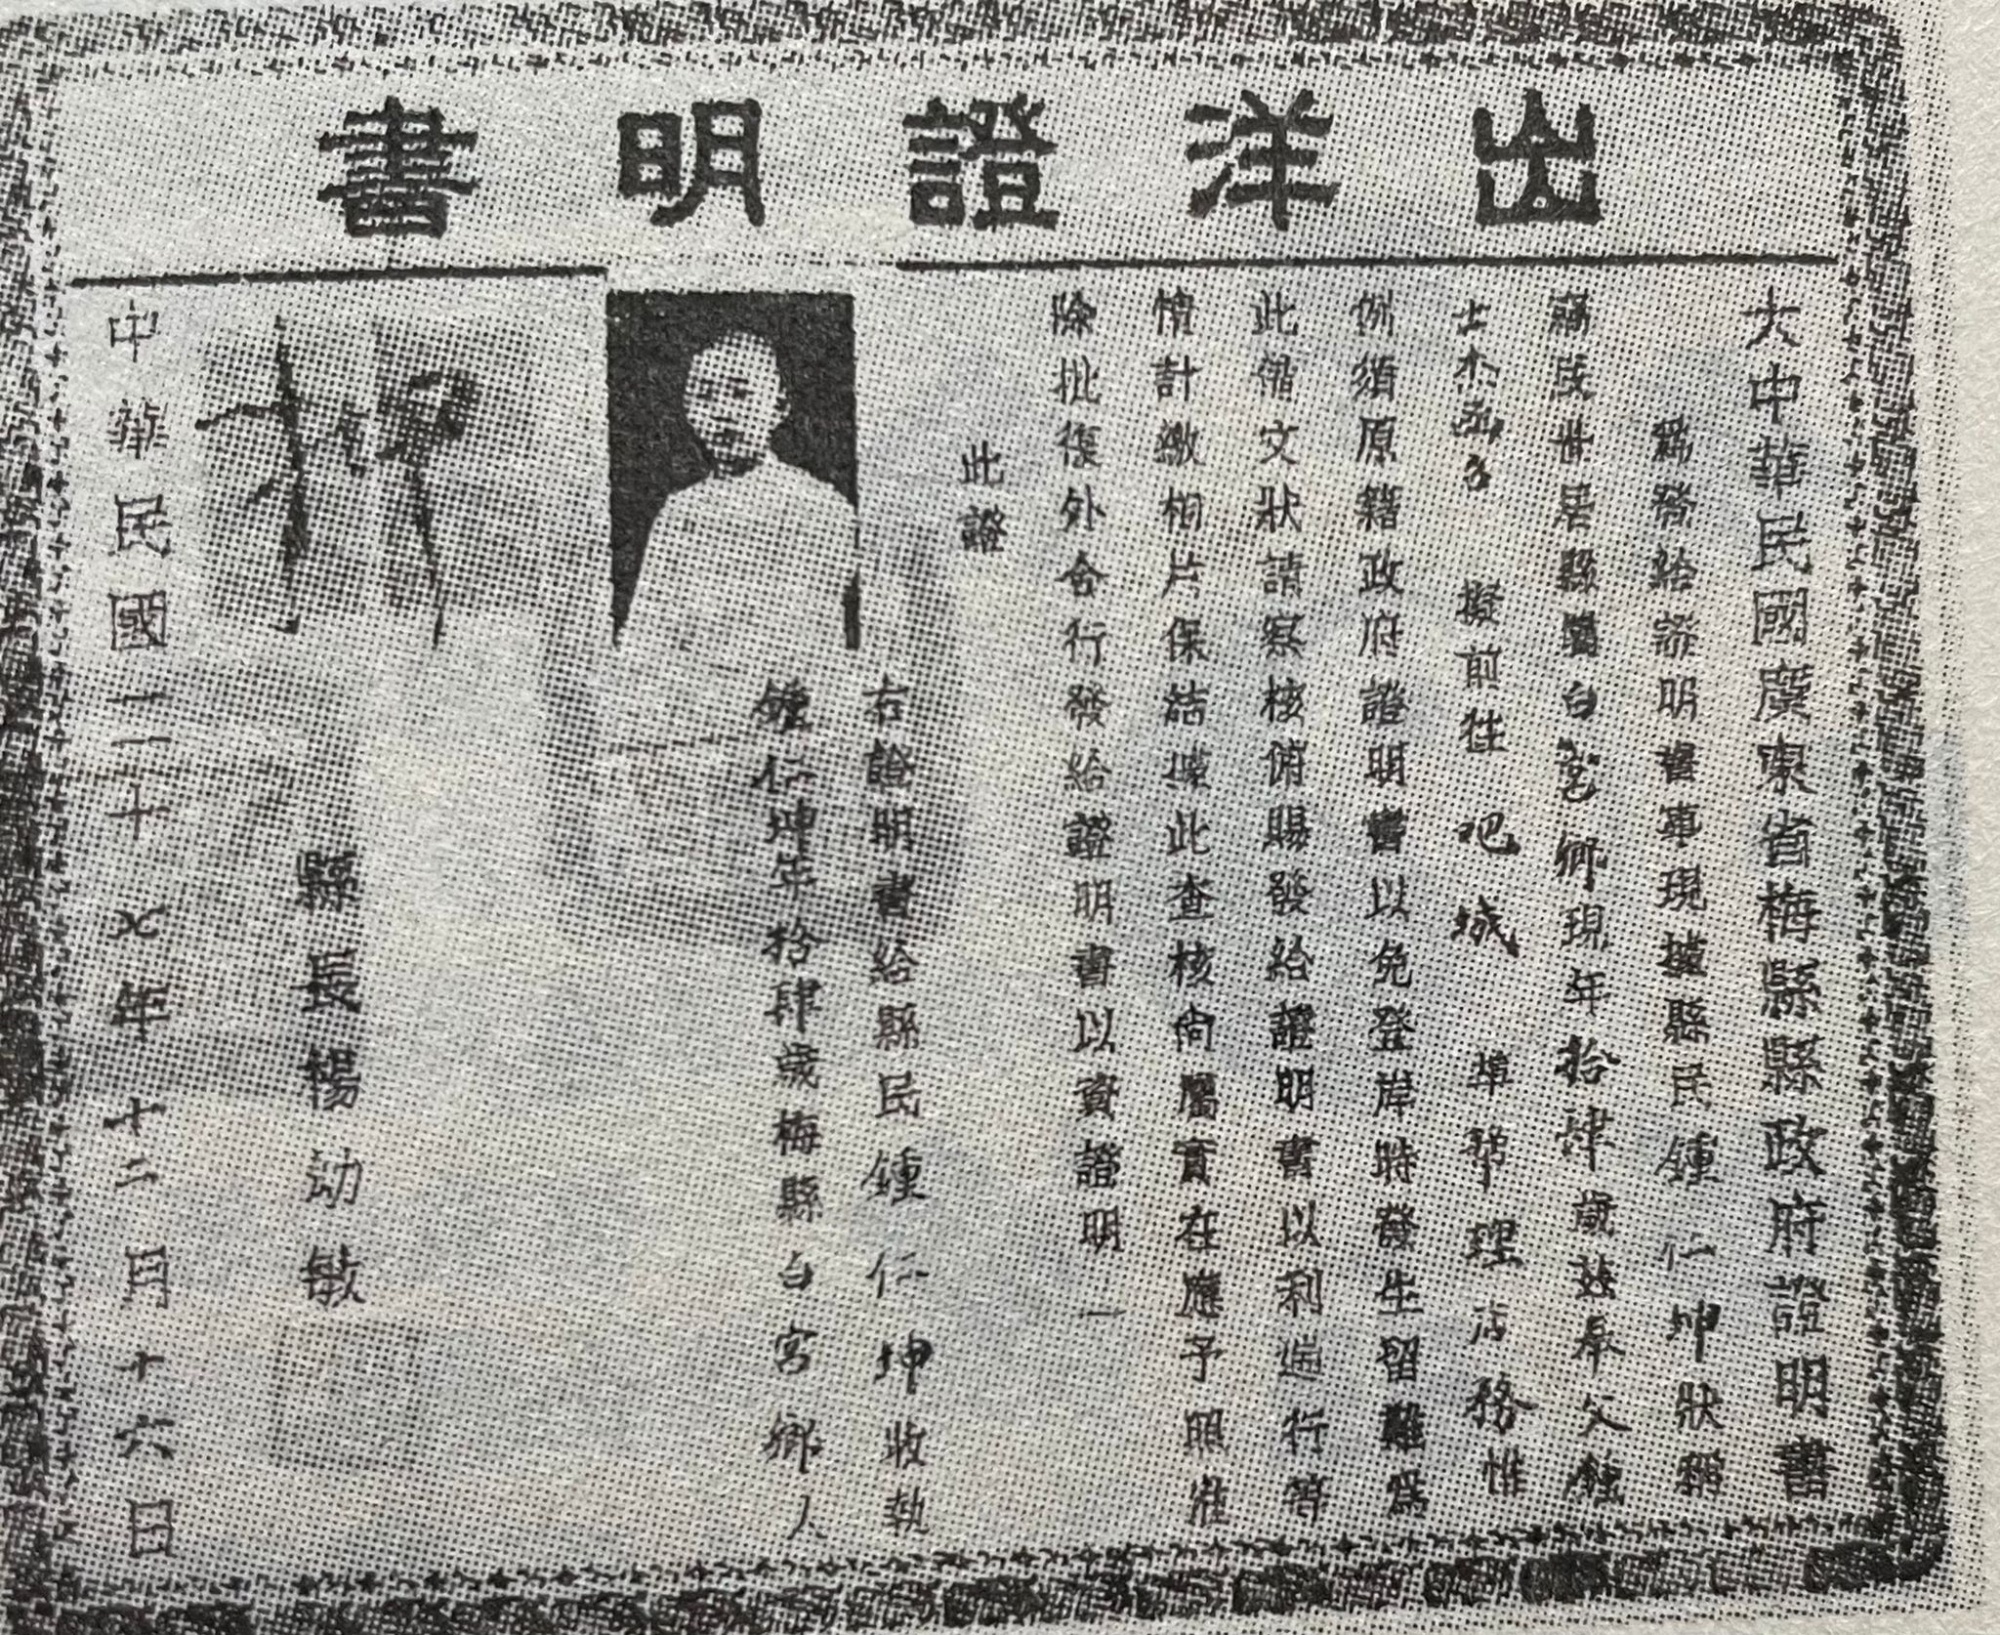 出洋證明書
大中華民國廣東省梅縣縣政府證明書
爲發給證明書事現據縣民鍾仁坤狀稱
竊民世居縣屬白宮鄉現年拾肆歲茲奉父鍾
士杰函召 擬前往 吧城 埠幫理店務惟
例須原籍政府證明書以免登岸時發生留難爲
此備文狀請察核俯賜發給證明書以利遄行等
情計繳相片保結據此查核尚屬實在應予照准
除批復外合行發給證明書以資證明
此證
右證明書給縣民鍾仁坤收執
鍾仁坤年拾肆歲梅縣白宮鄉人
縣長楊幼敏
中華民國二十七年十二月十六日